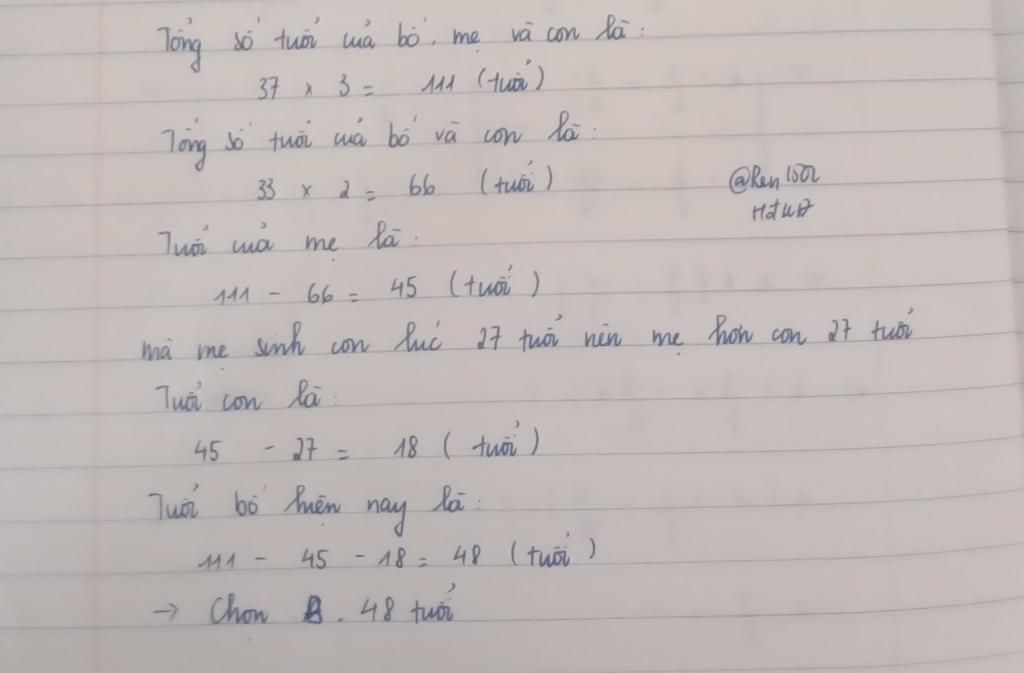 Tổng số tuổi của bố, mẹ và con là:
37 x 3 = 111 (tuổi)
Tổng số tuổi của bố và con là:
33 x 2 = 66 (tuổi)
@Ren1502
Tuổi của mẹ là:
111 - 66 = 45 (tuổi)
mà mẹ sinh con lúc 27 tuổi nên mẹ hơn con 27 tuổi
Tuổi con là:
45 - 27 = 18 (tuổi)
Tuổi bố hiện nay là:
111 - 45 - 18 = 48 (tuổi)
→ Chọn B. 48 tuổi